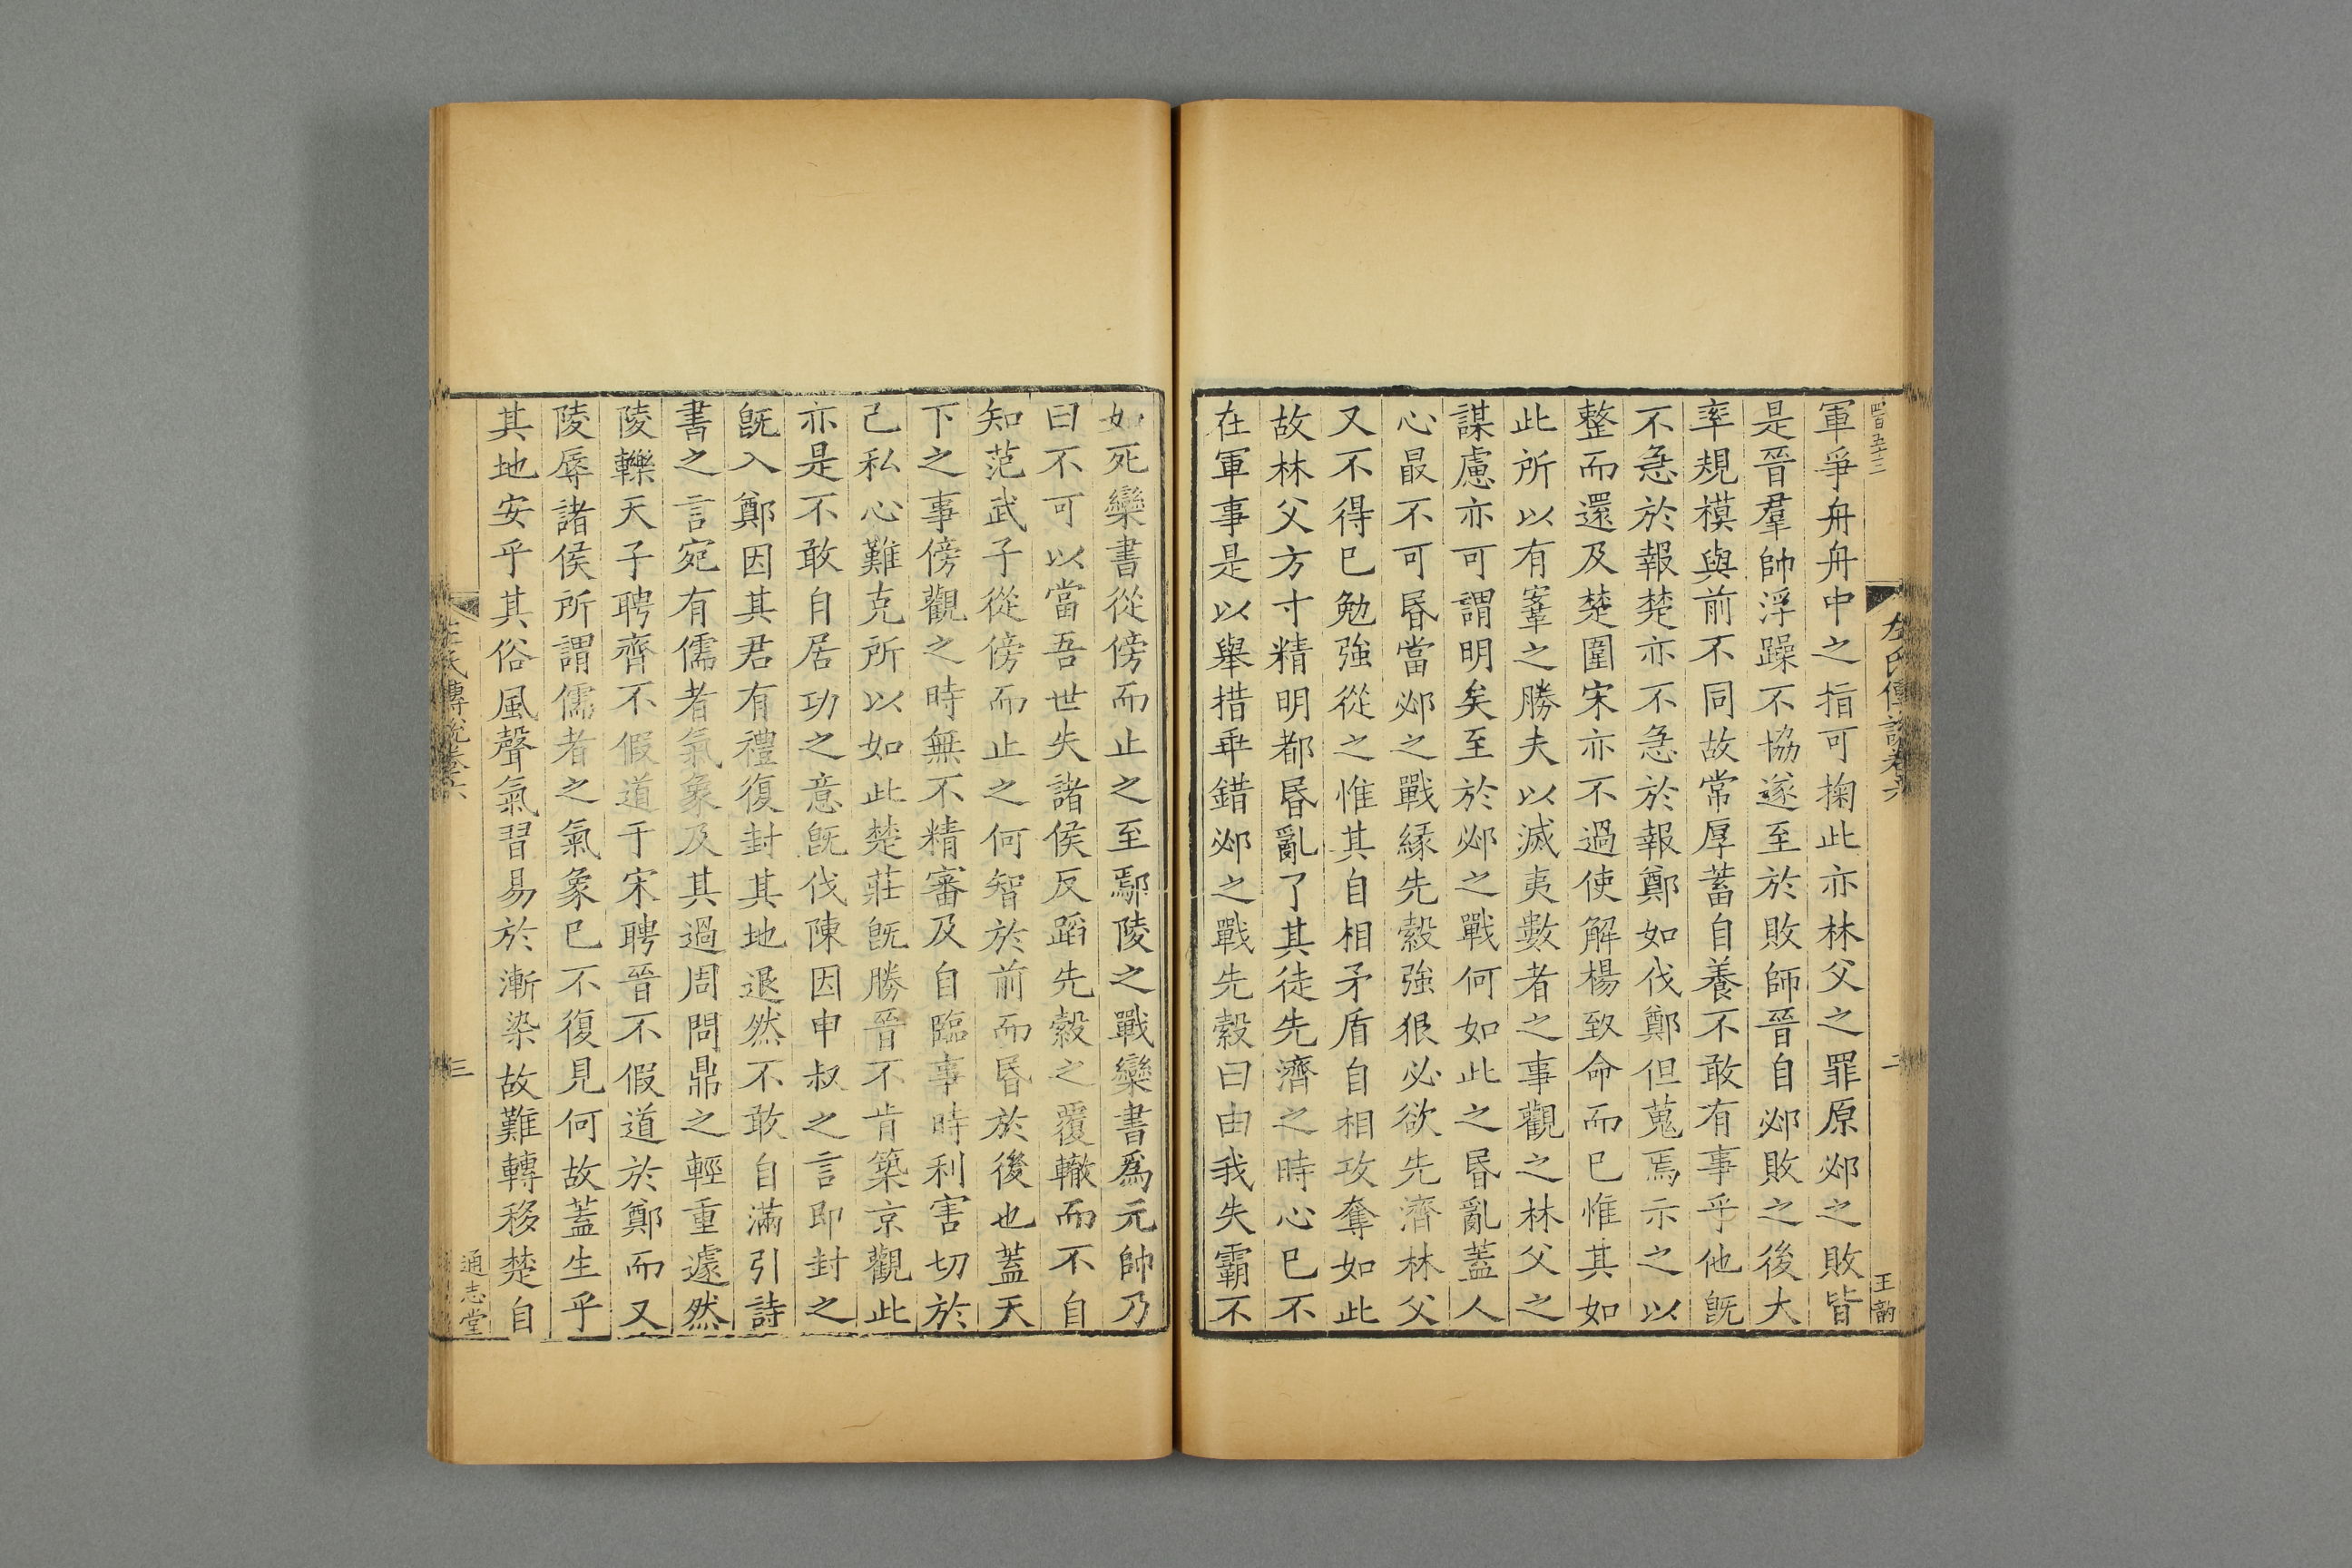 四百五十三
左氏傳說卷六
二
王韵
軍爭舟舟中之指可掬此亦林父之罪原邲之敗皆
是晉羣帥浮躁不協遂至於敗師晉自邲敗之後大
率規模與前不同故常厚蓄自養不敢有事乎他旣
不急於報楚亦不急於報鄭如伐鄭但蒐焉示之以
整而還及楚圍宋亦不過使解楊致命而已惟其如
此所以有鞌之勝夫以滅夷數者之事觀之林父之
謀慮亦可謂明矣至於邲之戰何如此之昬亂蓋人
心最不可昬當邲之戰緣先縠強狠必欲先濟林父
又不得已勉強從之惟其自相矛盾自相攻奪如此
故林父方寸精明都昬亂了其徒先濟之時心已不
在軍事是以舉措乖錯邲之戰先縠曰由我失霸不
如死欒書從傍而止之至鄢陵之戰欒書爲元帥乃
曰不可以當吾世失諸侯反蹈先縠之覆轍而不自
知范武子從傍而止之何智於前而昬於後也蓋天
下之事傍觀之時無不精審及自臨事時利害切於
己私心難克所以如此楚莊旣勝晉不肯築京觀此
亦是不敢自居功之意旣伐陳因申叔之言即封之
旣入鄭因其君有禮復封其地退然不敢自滿引詩
書之言宛有儒者氣象及其過周問鼎之輕重遽然
陵轢天子聘齊不假道于宋聘晉不假道於鄭而又
陵辱諸侯所謂儒者之氣象已不復見何故蓋生乎
其地安乎其俗風聲氣習易於漸染故難轉移楚自
左氏傳說卷六
三
通志堂